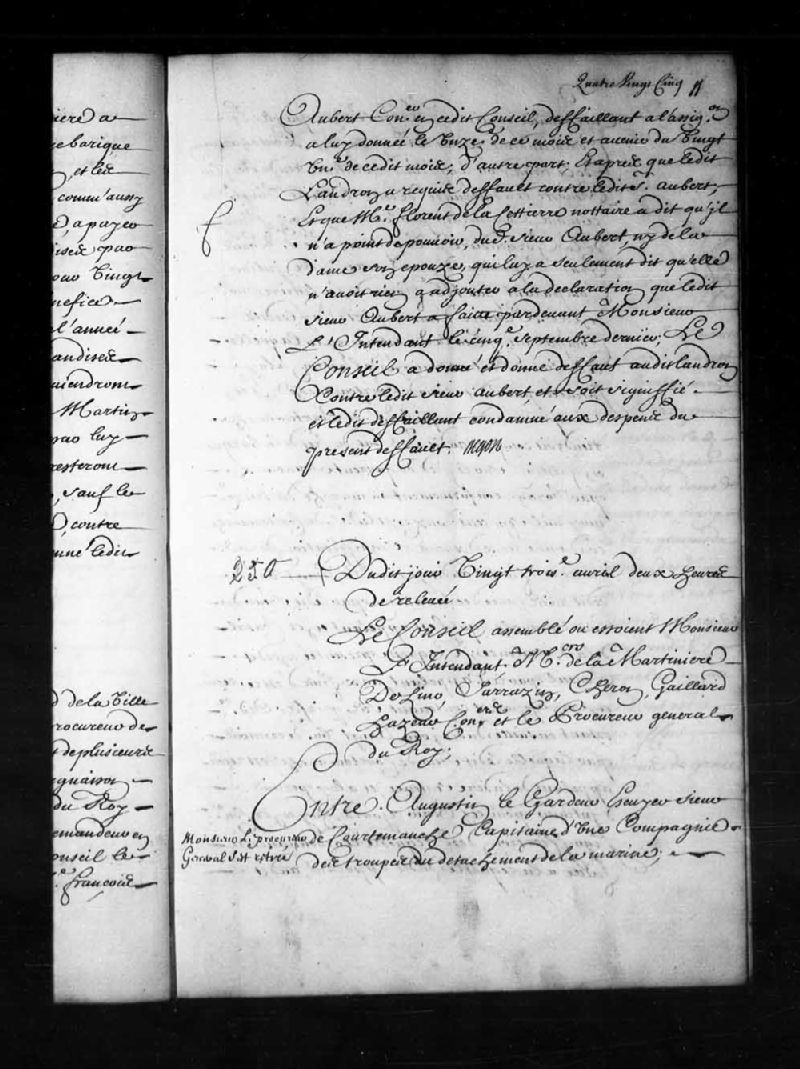 Quatre Vingt Cinq
Aubert Con.er en cedit Conseil, deffaillant a l'assig.on
a luy donnée le Unze.e de ce mois et avenir du Vingt
Un.e de cedit mois, d'autre part, Et apres que ledit
Landron a requis deffault contre ledit s.r aubert,
Et que M.e florent de la Cettiere nottaire a dit qu'jl
n'a point de pouvoir du d. sieur Aubert, ny de la
dame son epouze, qui luy a seulement dit qu'elle
n'avoit rien a adjouter a la declaration que ledit
sieur Aubert a faitte pardevant Monsieur
L'Intendant le cinq.e septembre dernier, Le
Conseil a donné et donne deffaut audit landron
Contre ledit sieur aubert, et soit signiffié
et ledit deffaillant condamné aux despens du
present deffault. Begon
Dudit jour Vingt trois.e avril deux heures
de relevée
Le Conseil assemblé ou estoient Monsieur
L'Intendant M.rs de la Martiniere
De Lino, Sarrazin, Cheron, Gaillard
hazeur Con.ers et le Procureur general
du Roy;
Entre Augustin le Gardeur Escuyer sieur
de Courtemanche Capitaine d'Une Compagnie
des trouppes du detachement de la marine;
Monsieur Le procureur
General s'est retiré
iere a
barique
et les
comm'aussy
a payer
par
Vingt
nefice
l'année
andises
Martin
par luy
resteront
, sauf le
contre
ledit
d de la Ville
rocureur de
de plusieurs
du Roy
emandeur en
onseil le
françois